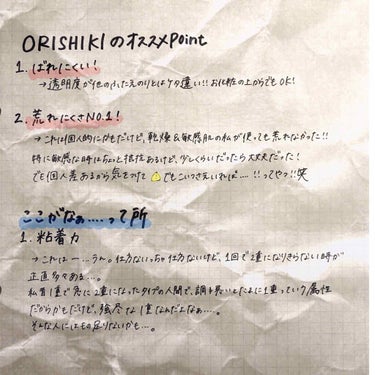 ORISHIKIのオススメPoint
1. ばれにくい!
→透明度が他のふたえのりとはケタ違い!!お化粧の上からでもOK!
2. 荒れにくさNO.1!
→これは個人的にかもだけど、乾燥&敏感肌の私が使っても荒れなかった!!
特に敏感な時はちょっと抵抗あるけど、少しくらいだったら大丈夫だった!
でも個人差あるから気をつけて でもこいつさえいれば…!!ってやつ!!笑
ここがなぁ….って所
1. 粘着力
→これはー…うん。仕方ないっちゃ仕方ないけど、1回で2重になりきらない時が
正直多々ある…。
私昔1重で急に2重になったタイプの人間で、調子悪いとたまに1重っていう属性
だからかもだけど、強烈な1重なんだよなぁ…。
そんな人にはもの足りないかも…。